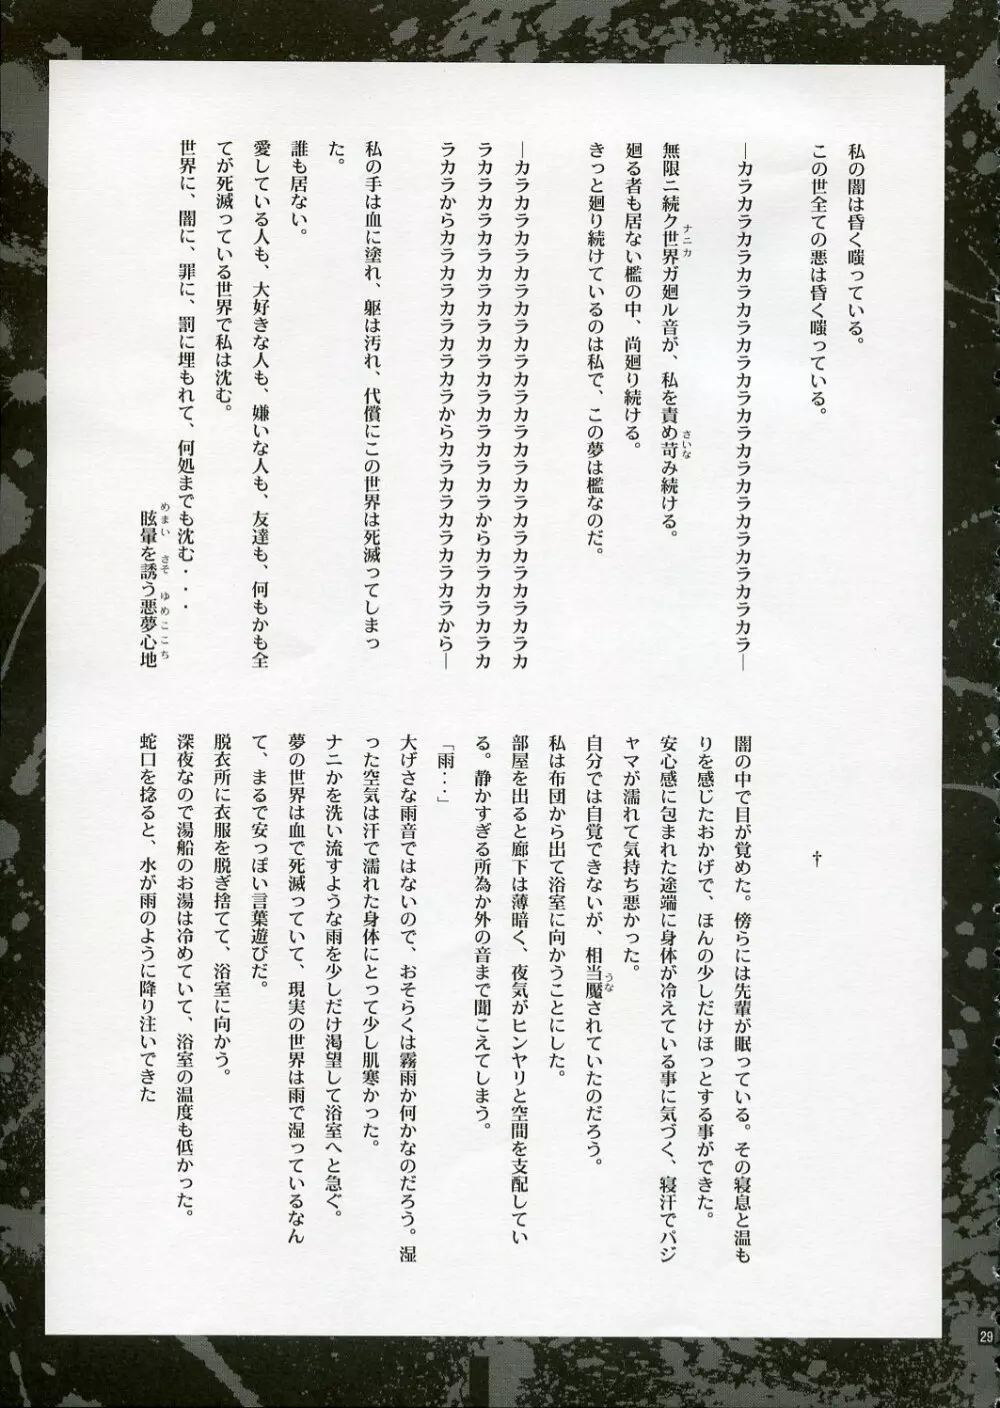 私の闇は昏く嗤っている。
この世全ての悪は昏く嗤っている。
―カラカラカラカラカラカラカラカラカラカラカラカラカラカラ―
無限ニ続ク世界ガ廻ル音が、私を責め苛み続ける。
ナニカ
さいな
廻る者も居ない檻の中、尚廻り続ける。
きっと廻り続けているのは私で、この夢は檻なのだ。
―カラカラカラカラカラカラカラカラカラカラカラカラカラカラカ
ラカラカラカラカラカラカラカラカラカラからカラカラカラカラカ
ラカラからカラカラカラカラカラカラからカラカラカラカラカラから―
私の手は血に塗れ、躯は汚れ、代償にこの世界は死滅ってしまっ
た。
誰も居ない。
愛している人も、大好きな人も、嫌いな人も、友達も、何もかも全
てが死滅っている世界で私は沈む。
世界に、闇に、罪に、罰に埋もれて、何処までも沈む・・・
眩暈を誘う悪夢心地
めまい さそ ゆめここち
†
闇の中で目が覚めた。傍らには先輩が眠っている。その寝息と温も
りを感じたおかげで、ほんの少しだけほっとする事ができた。
安心感に包まれた途端に身体が冷えている事に気づく、寝汗でパジ
ヤマが濡れて気持ち悪かった。
自分では自覚できないが、相当魘されていたのだろう。
うな
私は布団から出て浴室に向かうことにした。
部屋を出ると廊下は薄暗く、夜気がヒンヤリと空間を支配してい
る。静かすぎる所為か外の音まで聞こえてしまう。
「雨・・・」
大げさな雨音ではないので、おそらくは霧雨か何かなのだろう。湿
った空気は汗で濡れた身体にとって少し肌寒かった。
ナニかを洗い流すような雨を少しだけ渇望して浴室へと急ぐ。
夢の世界は血で死滅っていて、現実の世界は雨で湿っているなん
て、まるで安っぽい言葉遊びだ。
脱衣所に衣服を脱ぎ捨てて、浴室に向かう。
深夜なので湯船のお湯は冷めていて、浴室の温度も低かった。
蛇口を捻ると、水が雨のように降り注いできた
29